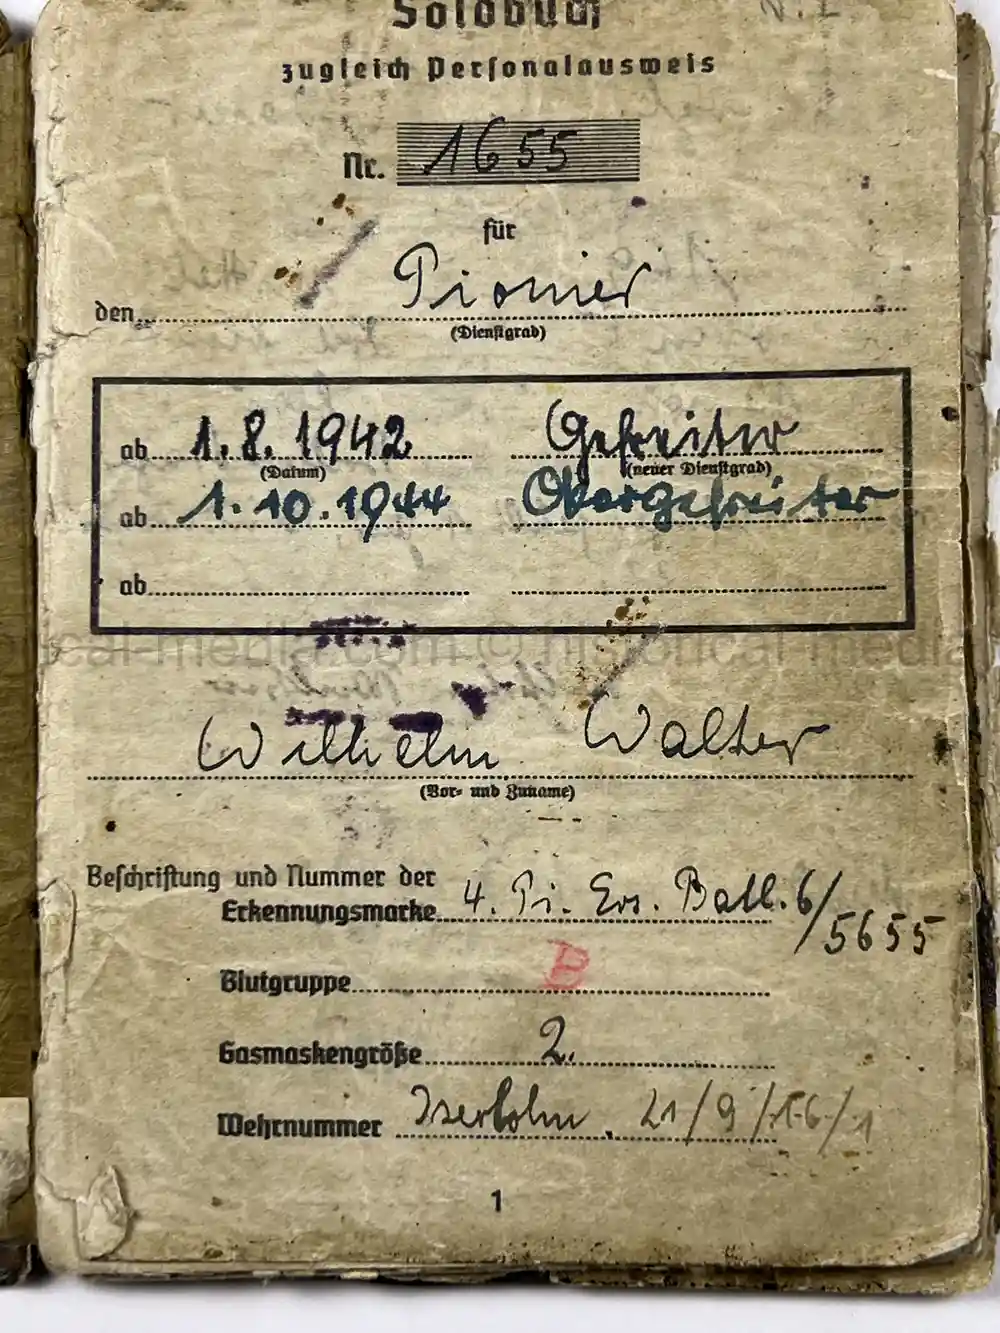 Soldbuch
zugleich Personalausweis
Nr. 1655
für
den Pionier
(Dienstgrad)
ab 1.8.1942 Gefreiter
(Datum) (neuer Dienstgrad)
ab 1.10.1944 Obergefreiter
ab
historical-media.com © historical-media
Wilhelm Walter
(Vor- und Zuname)
Beschriftung und Nummer der
Erkennungsmarke 4. Pi. Ers. Batl. 6/5655
Blutgruppe B
Gasmaskengröße 2.
Wehrnummer Iserlohn 21/9/16/1
1